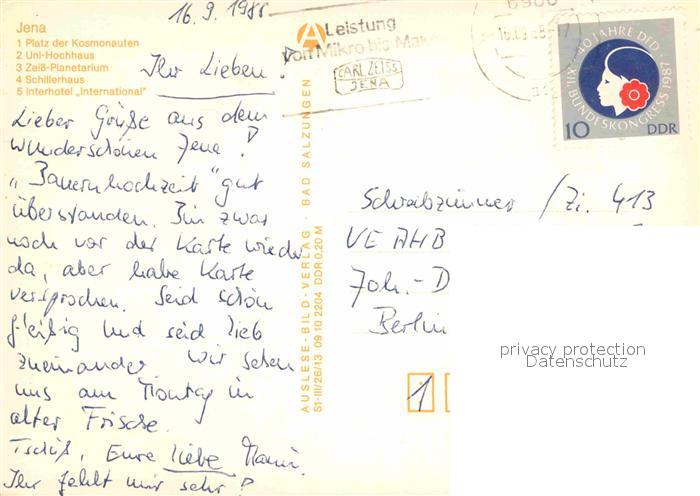 16.9.1988
Jena
1 Platz der Kosmonauten
2 Uni-Hochhaus
3 Zeiß-Planetarium
4 Schillerhaus
5 Interhotel „International"
Ihr Lieben!
Lieber Grüße aus dem
wunderschönen Jena!
„Bauernhochzeit" gut
überstanden. Bin zwar
noch vor der Karte wieder
da, aber habe Karte
versprochen. Seid schön
fleißig und seid lieb
zueinander. Wir sehen
uns am Montag in
alter Frische.
Tschüß, Eure liebe
Ihr fehlt mir sehr!
AUSLESE-BILD-VERLAG · BAD SALZUNGEN
S1-III/26/13 09 10 2204 DDR 0,20 M
Leistung
von Mikro bis
CARL ZEISS
JENA
XII. BUNDESKONGRESS 1987
40 JAHRE DFD
10 DDR
Schreibzimmer / Zi. 413
VE AHB
Joh.-D
Berlin
1
privacy protection
Datenschutz